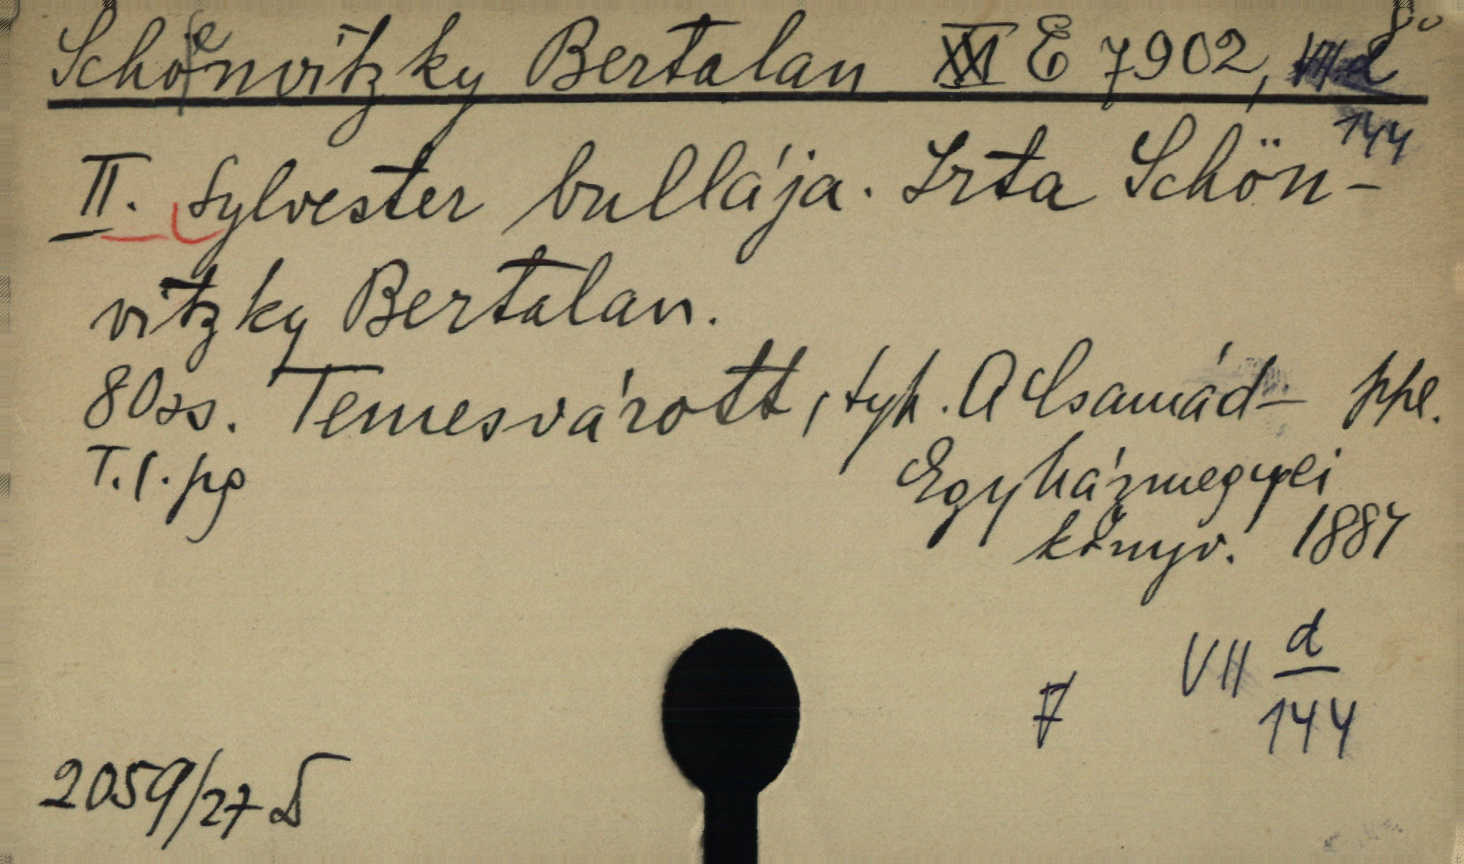 Schoenvitzky Bertalan XXI E 7902, VII d 8°
144
II. Sylvester bullája. Irta Schön-
vitzky Bertalan.
80 ss. Temesvárott, typ. A Csanád- ppe.
T. 1. pg Egyházmegyei
könyv. 1887
VII d
7 144
2059/27